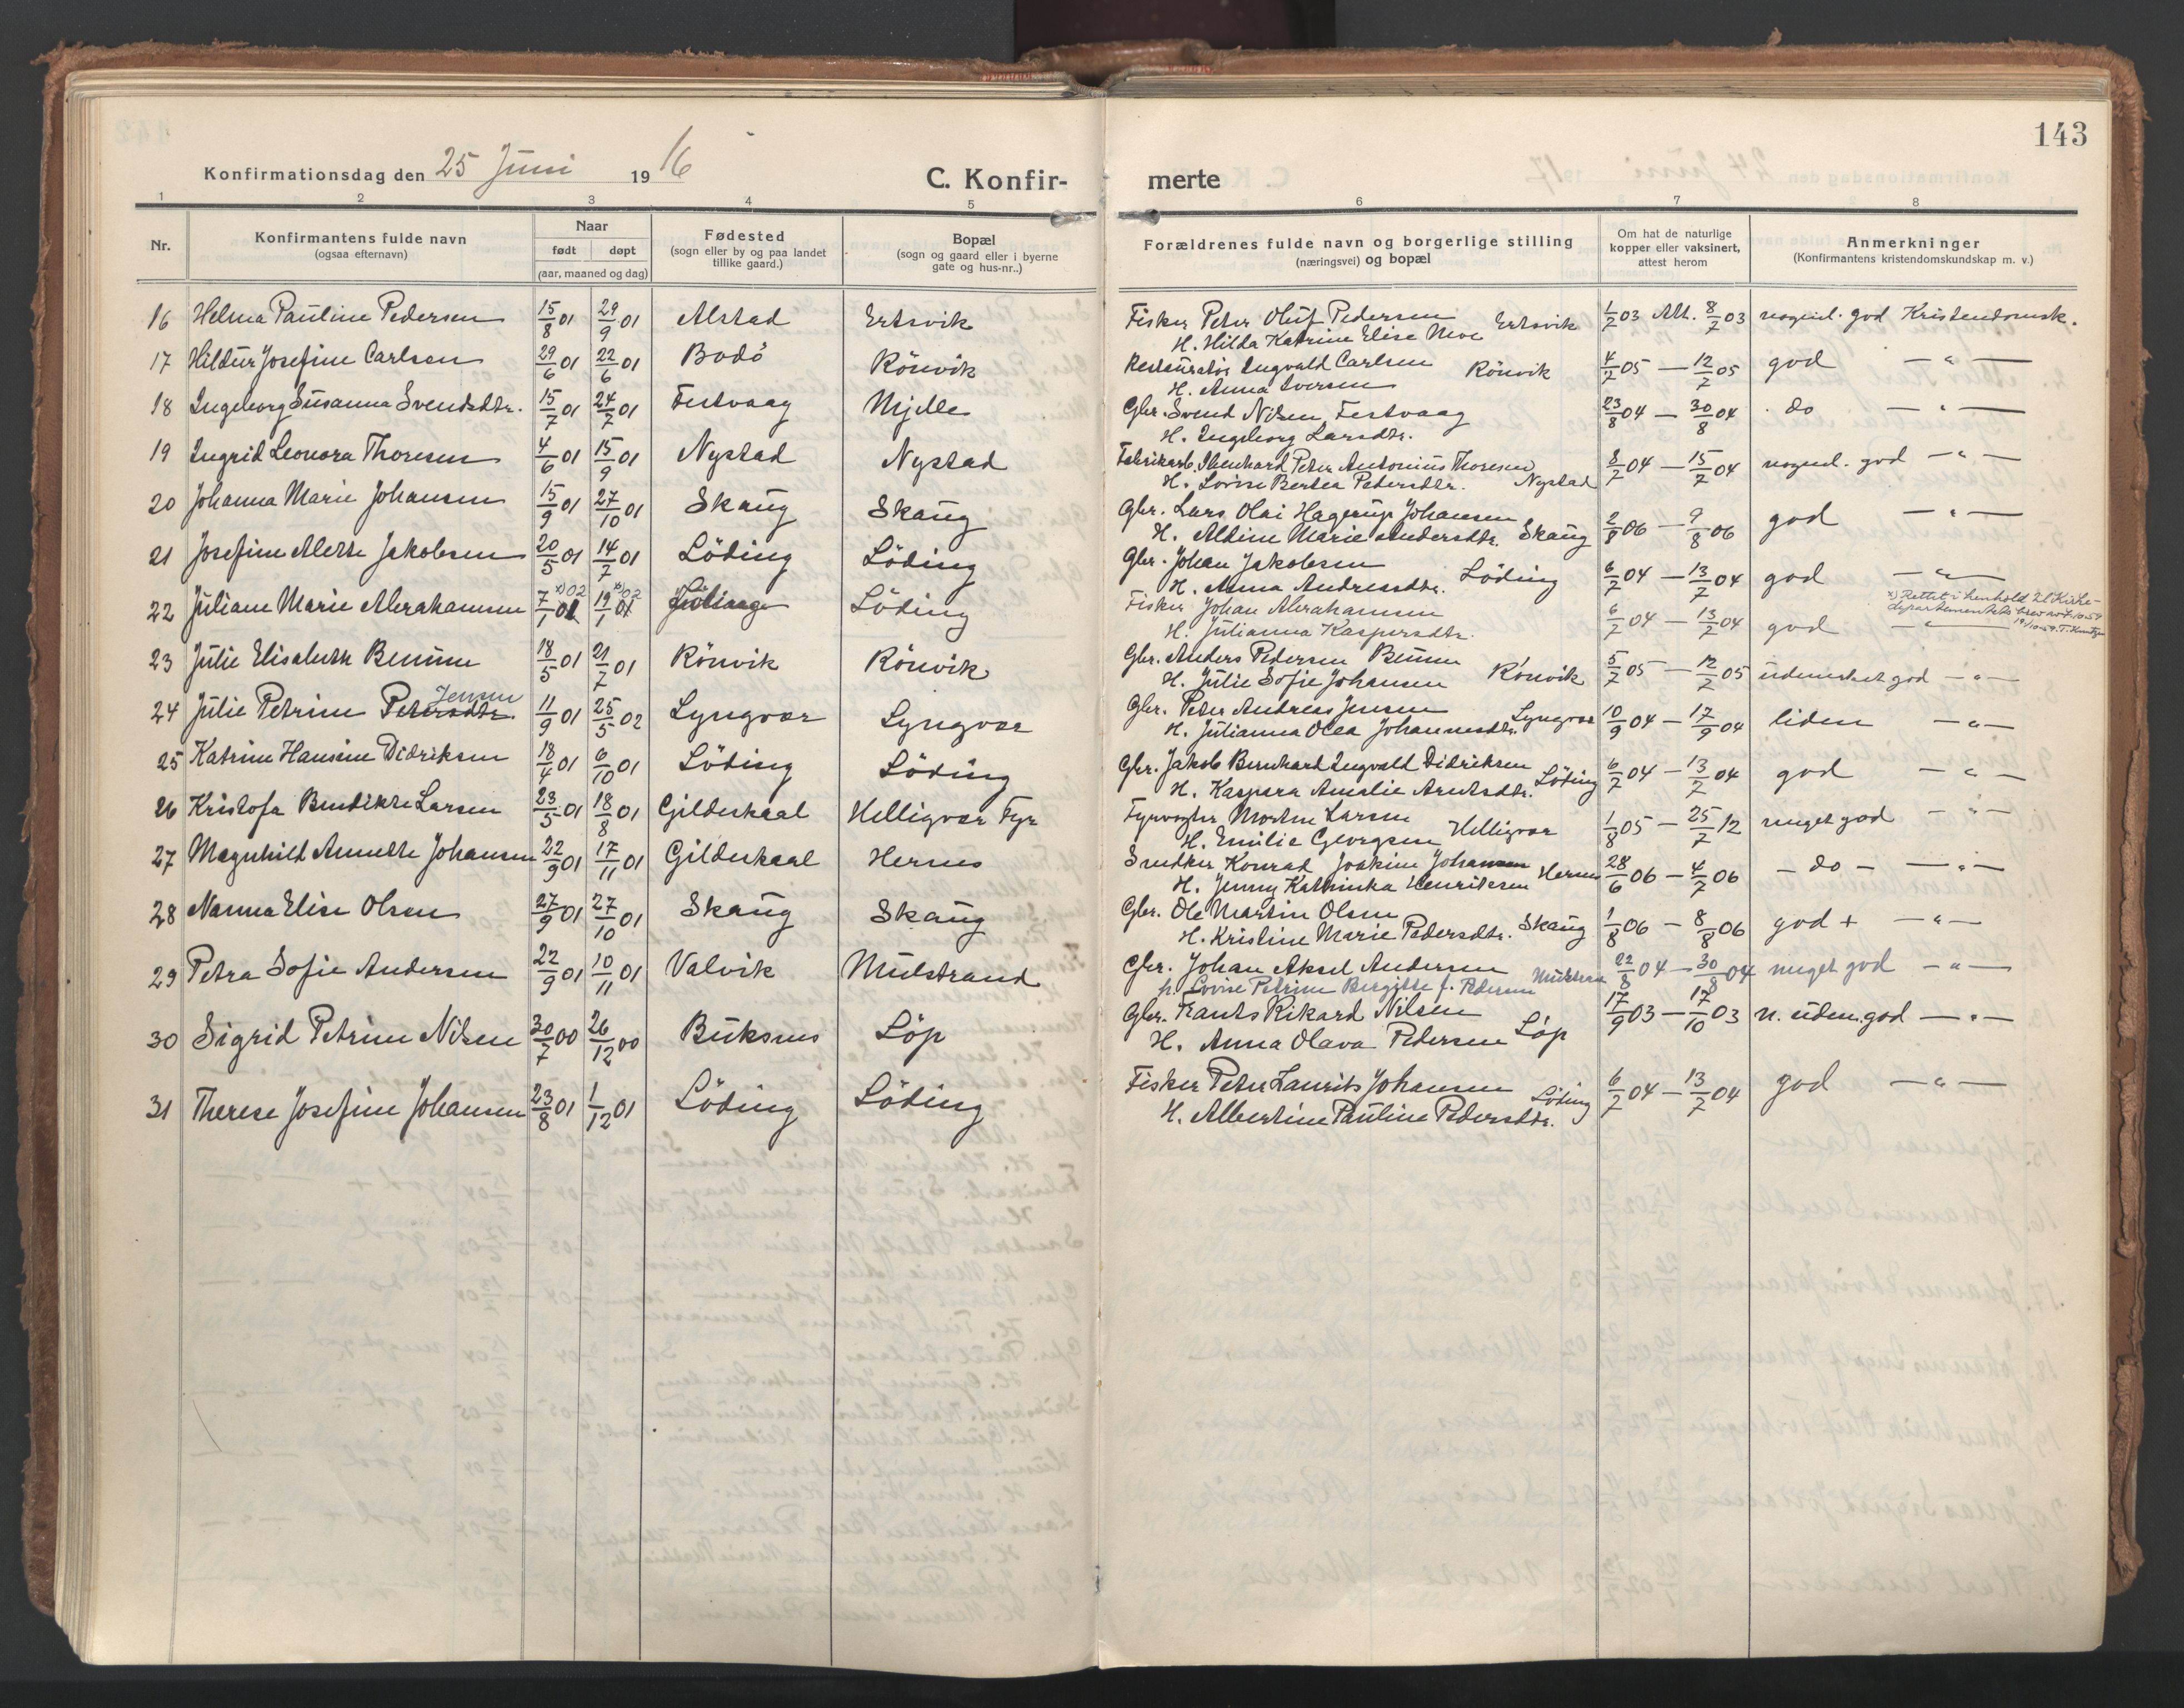 143
Konfirmationsdag den 25 Juni 1916
C. Konfir-
merte
1 2 3 4 5 6 7 8
Nr.
Konfirmantens fulde navn
(ogsaa efternavn)
Naar
født døpt
(aar, maaned og dag)
Fødested
(sogn eller by og paa landet
tillike gaard.)
Bopæl
(sogn og gaard eller i byerne
gate og hus-nr..)
Forældrenes fulde navn og borgerlige stilling
(næringsvei) og bopæl
Om hat de naturlige
kopper eller vaksinert,
attest herom
Anmerkninger
(Konfirmantens kristendomskundskap m. v.)
16 Helma Pauline Pedersen 15/8 01 29/9 01 Alstad Ertsvik Fisker Peter Oluf Pedersen Ertsvik 1/7 03 Att. 8/7 03 nogenl. god Kristendomsk.
H. Hilda Katrine Elise Moe
17 Hildur Josefine Carlsen 29/6 01 22/6 01 Bodö Rönvik Restauratör Ingvald Carlsen Rönvik 4/7 05 — 12/7 05 god — " —
H. Anna Iversen
18 Ingeborg Susanna Svendsdtr. 15/7 01 24/7 01 Festvaag Mjelle Gbr. Svend Nilsen Festvaag 23/8 04 — 30/8 04 do — " —
H. Ingeborg Larsdtr.
19 Ingrid Leonora Thoresen 4/6 01 15/9 01 Nystad Nystad Fabrikarb. Ibenhard Peter Antonius Thoresen 8/7 04 — 15/7 04 nogenl. god — " —
H. Lovise Bertea Pedersdtr. Nystad
20 Johanna Marie Johansen 15/9 01 27/10 01 Skaug Skaug Gbr. Lars Olai Hagerup Johansen 2/8 06 — 9/8 06 god — " —
H. Aldine Marie Andersdtr. Skaug
21 Josefine Alette Jakobsen 20/5 01 14/7 01 Löding Löding Gbr. Johan Jakobsen Löding 6/7 04 — 13/7 04 god — " —
H. Anna Andreasdtr.
22 Juliane Marie Abrahamsen 7/1 01 x) 02 19/1 01 x) 02 Löding Löding Fisker Johan Abrahamsen 6/7 04 — 13/7 04 god — " —
H. Julianna Kaspersdtr.
x) Rettet i henhold til Kirke-
departementets brev av 7.10-59
19/10-59.
23 Julie Elisabeth Benum 18/5 01 21/7 01 Rönvik Rönvik Gbr. Anders Pedersen Benum Rönvik 5/7 05 — 12/7 05 udmerket god — " —
H. Julie Sofie Johansen
24 Julie Petrine Petersdtr. Jensen 11/9 01 25/5 02 Lyngvær Lyngvær Gbr. Peter Andreas Jensen Lyngvær 10/9 04 — 17/9 04 liden — " —
H. Julianna Olea Johannesdtr.
25 Katrine Hansine Didriksen 18/4 01 6/10 01 Löding Löding Gbr. Jakob Bernhard Ingvald Didriksen Löding 6/7 04 — 13/7 04 god — " —
H. Kaspara Amalie Arntsdtr.
26 Kristofa Bendikte Larsen 23/5 01 18/8 01 Gildeskaal Helligvær Fyr Fyrvogter Morten Larsen Helligvær 1/8 05 — 25/7 12 meget god — " —
H. Emilie Georgsen
27 Magnhild Annette Johansen 22/9 01 17/11 01 Gildeskaal Hernes Snedker Konrad Joakim Johansen Hernes 28/6 06 — 4/7 06 — do — — " —
H. Jenny Kathinka Henriksen
28 Nanna Elise Olsen 27/9 01 27/10 01 Skaug Skaug Gbr. Ole Martin Olsen Skaug 1/8 06 — 8/8 06 god + — " —
H. Kristine Marie Pedersdtr.
29 Petra Sofie Andersen 22/9 01 10/11 01 Valvik Mulstrand Gbr. Johan Aksel Andersen Mulstrand 22/8 04 — 30/8 04 meget god — " —
h. Lovise Petrine Bergitte f. Pedersen
30 Sigrid Petrine Nilsen 30/7 00 26/12 00 Buksnes Löp Gbr. Frants Rikard Nilsen Löp 17/9 03 — 17/10 03 n. udm. god — " —
H. Anna Olava Pedersen
31 Therese Josefine Johansen 23/8 01 1/12 01 Löding Löding Fisker Peter Laurits Johansen Löding 6/7 04 — 13/7 04 god — " —
H. Albertine Pauline Pedersdtr.